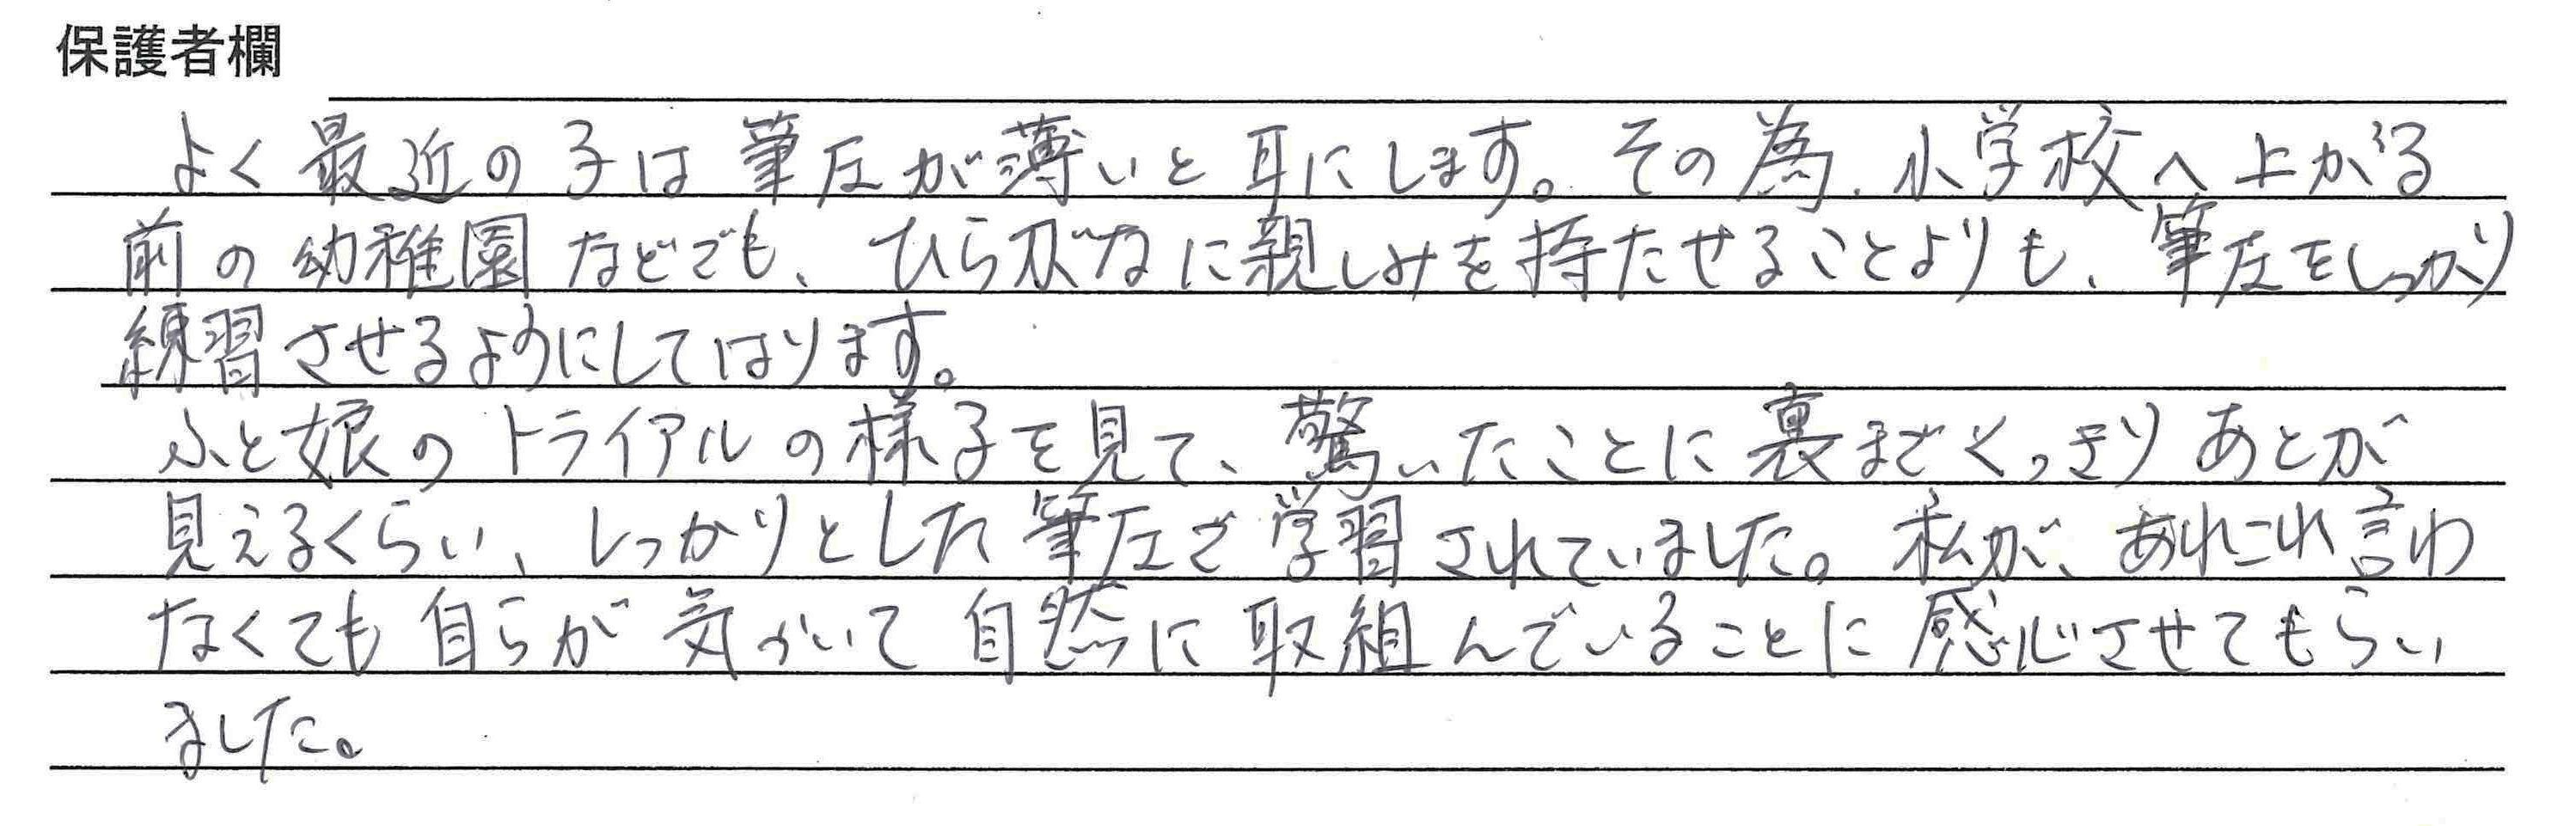 保護者欄
よく最近の子は筆圧が薄いと耳にします。その為、小学校へ上がる
前の幼稚園などでも、ひらがなに親しみを持たせることよりも、筆圧をしっかり
練習させるようにしてはります。
ふと娘のトライアルの様子を見て、驚いたことに裏までくっきりあとが
見えるくらい、しっかりとした筆圧で学習されていました。私が、あれこれ言わ
なくても自らが気づいて自然に取組んでいることに感心させてもらい
ました。